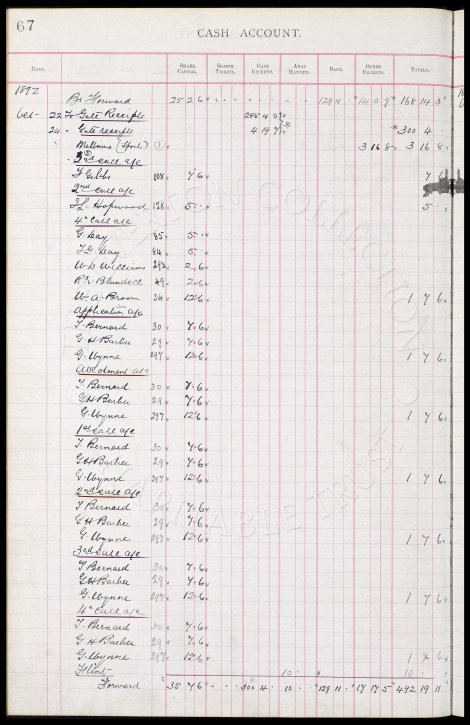 67
CASH ACCOUNT.
DATE. SHARE CAPITAL. SEASON TICKETS. GATE RECEIPTS. AWAY MATCHES. BANK. OTHER RECEIPTS. TOTALS.
1892
Bt Forward 25 2 6 129 11 14 0 9 168 14 3
Oct 22 To Gate Receipts 285 4 8
24 " Gate receipts 4 14 7 300 4
Melbourne (Sports) 1 3 16 8 3 16 8
3rd Call a/c
F Gibbs 108 7 6 7 6
2nd Call a/c
J.L. Hopwood 128 5 5
4th Call a/c
G Lay 85 5
F.G. Lay 84 5
W.C. Williams 2 6
R.G. Blundell 49 2 6
W. A. Broom 34 12 6 1 7 6
Application a/c
T. Bernard 30 7 6
G H Barber 29 7 6
G. Wynne 297 12 6 1 7 6
Allotment a/c
T. Bernard 30 7 6
G H Barber 29 7 6
G. Wynne 297 12 6 1 7 6
1st Call a/c
T. Bernard 30 7 6
G H Barber 29 7 6
G. Wynne 297 12 6 1 7 6
2nd Call a/c
T Bernard 30 7 6
G H Barber 29 7 6
G Wynne 297 12 6 1 7 6
3rd Call a/c
T Bernard 30 7 6
G H Barber 29 7 6
G. Wynne 297 12 6 1 7 6
4th Call a/c
T. Bernard 30 7 6
G H Barber 29 7 6
G. Wynne 297 12 6 1 7 6
Flint 10 10
Forward 35 7 6 300 4 10 129 11 17 17 5 492 19 11
EVERTON COLLECTION CHARITABLE TRUST